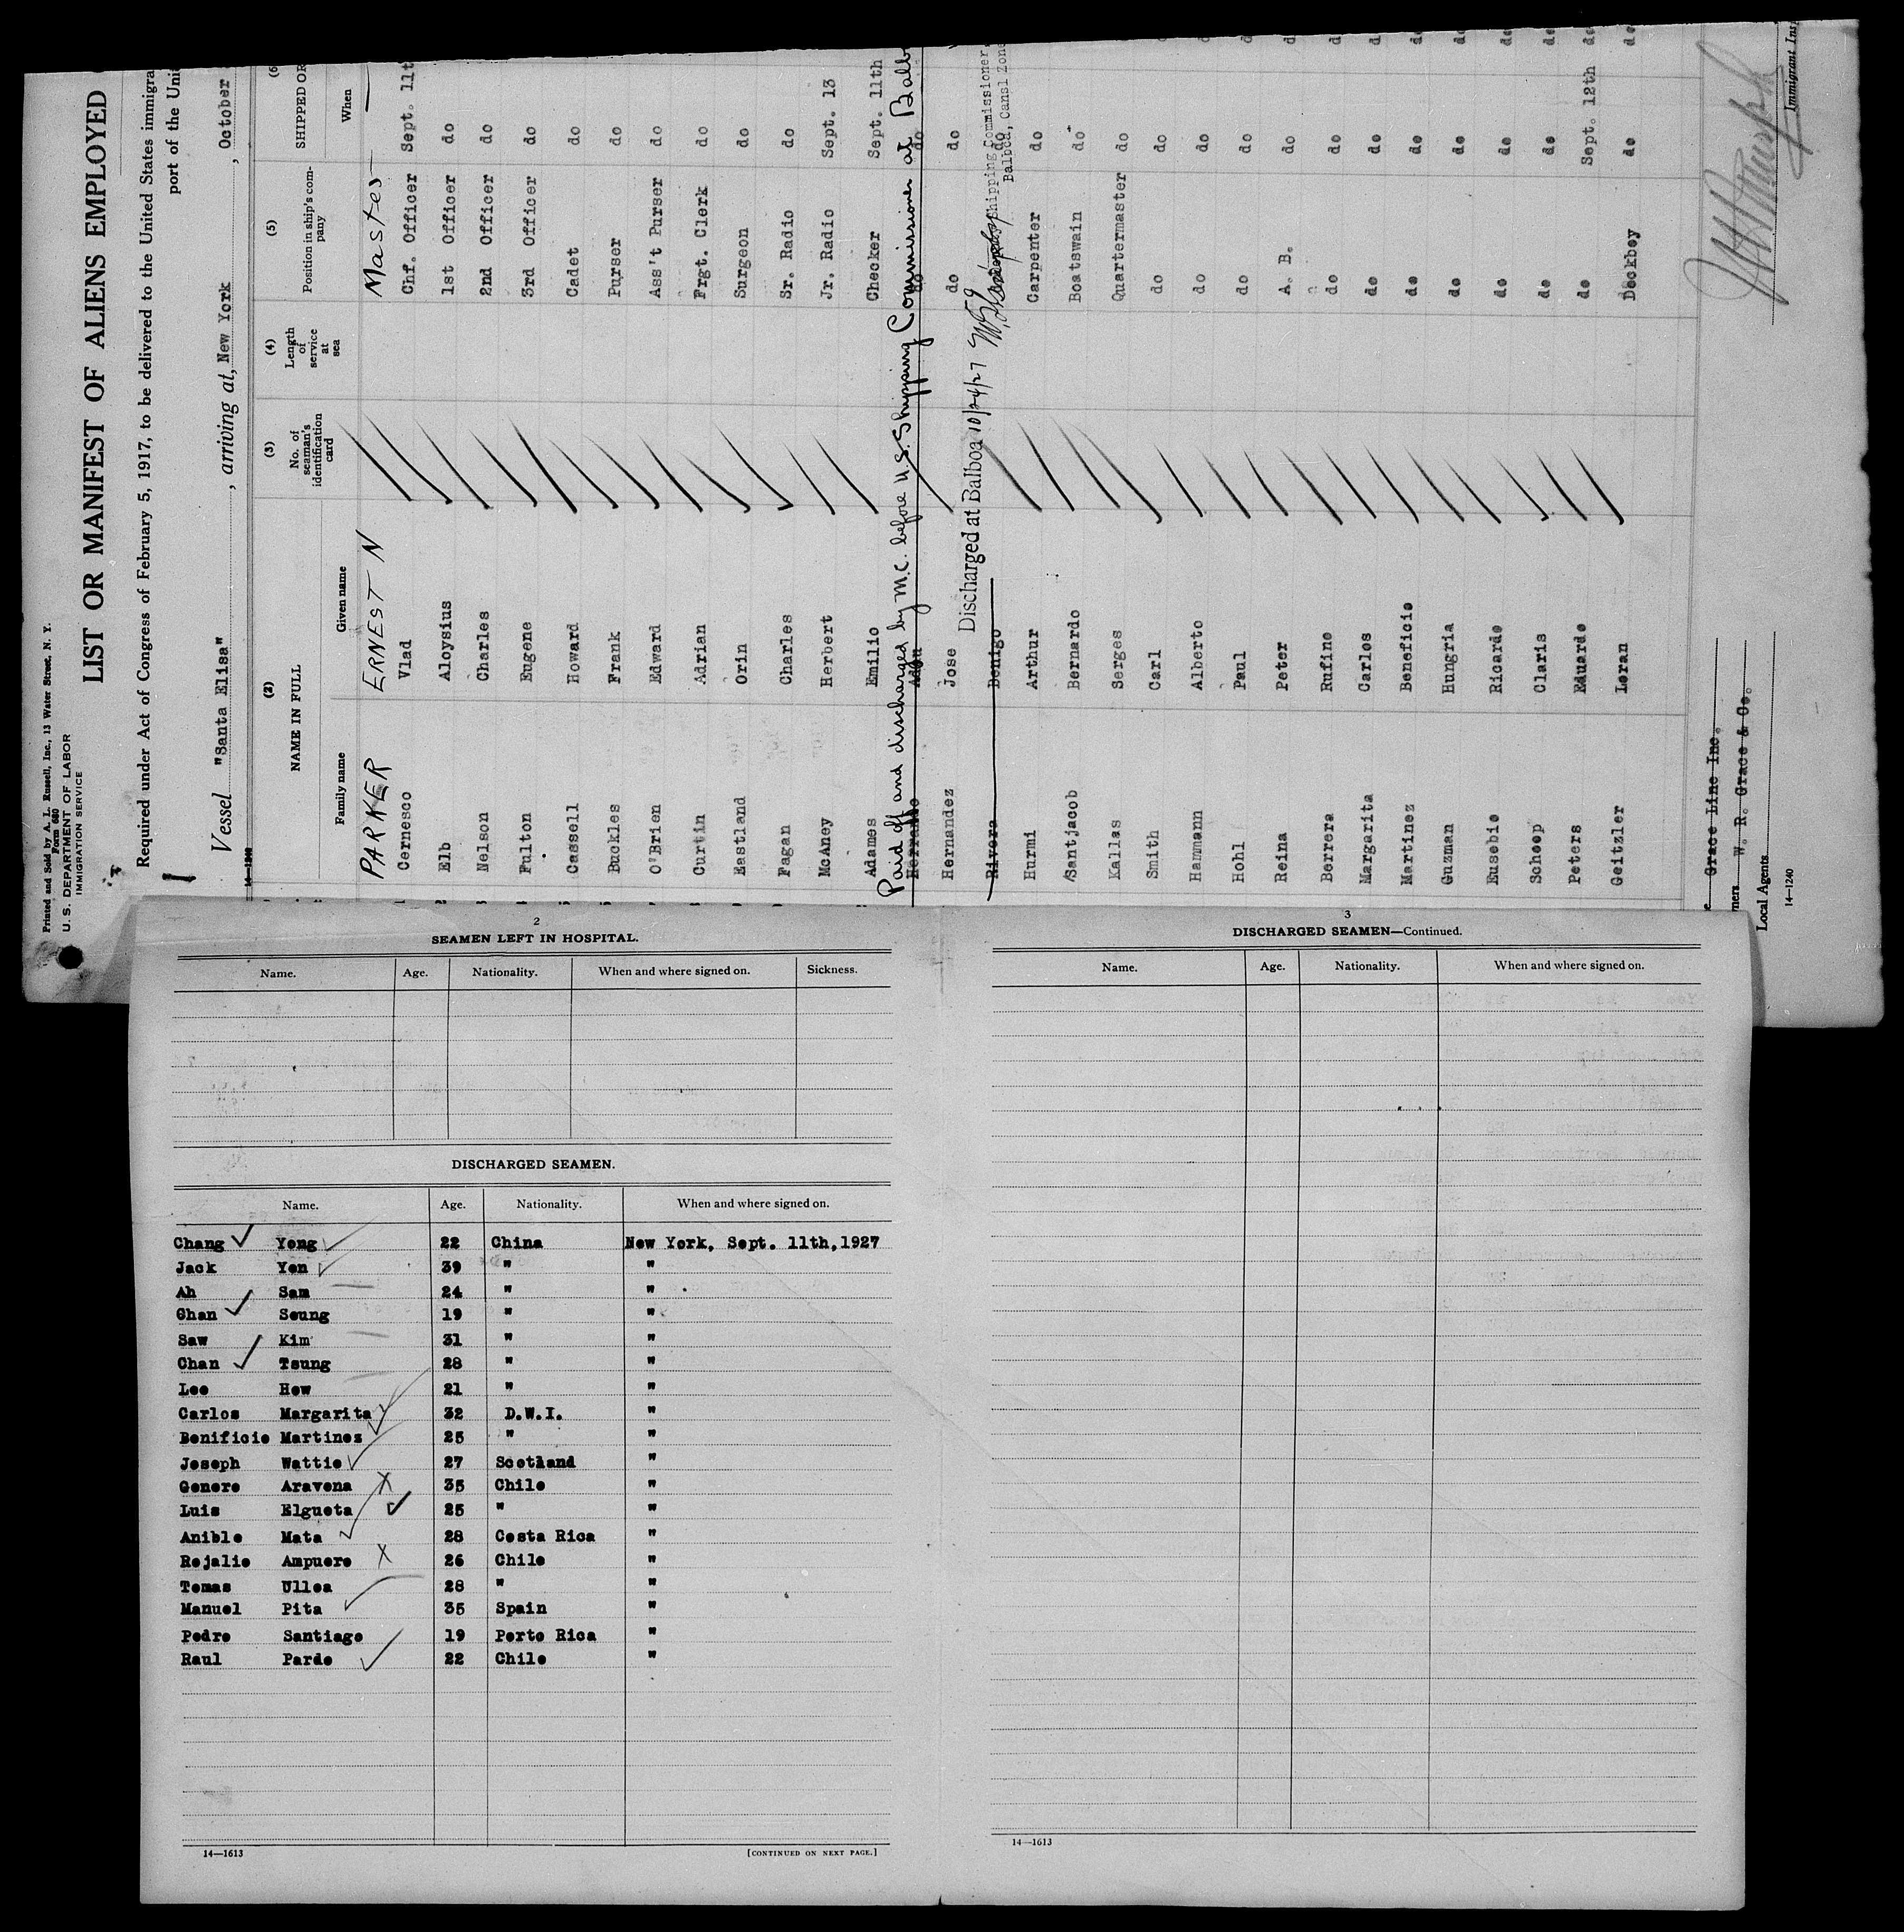 Printed and Sold by A. L. Russell, Inc., 13 Water Street, N. Y.
Form 680
U. S. DEPARTMENT OF LABOR
IMMIGRATION SERVICE
LIST OR MANIFEST OF ALIENS EMPLOYED
Required under Act of Congress of February 5, 1917, to be delivered to the United States immigra
port of the Unit
Vessel "Santa Elisa", arriving at, New York, October
14-1240
(2) (3) (4) (5) (6
NAME IN FULL No. of seaman's identification card Length of service at sea Position in ship's company SHIPPED OR
Family name Given name When
PARKER ERNEST N Master
Cernesco Vlad Chf. Officer Sept. 11t
Elb Aloysius 1st Officer do
Nelson Charles 2nd Officer do
Fulton Eugene 3rd Officer do
Cassell Howard Cadet do
Buckles Frank Purser do
O'Brien Edward Ass't Purser do
Curtin Adrian Frgt. Clerk do
Eastland Orin Surgeon do
Fagan Charles Sr. Radio do
McAney Herbert Jr. Radio Sept. 13
Adames Emilio Checker Sept. 11th
Paid off and discharged by M.C. before U.S. Shipping Commissioner at Balbo
do do
Hernandez Jose do do
Discharged at Balboa 10/24/27 Shipping Commissioner,
Balboa, Canal Zone
Rivera Benigo do
Hurmi Arthur Carpenter do
Santjacob Bernardo Boatswain do
Kallas Serges Quartermaster do
Smith Carl do do
Hammann Alberto do do
Hohl Paul do do
Reina Peter A. B. do
Berrera Rufino do do
Margarita Carlos do do
Martinez Beneficio do do
Guzman Hungria do do
Eusebio Ricardo do do
Scheep Claris do do
Peters Eduardo do Sept. 12th do
Geitzler Loran Deckboy do do
Grace Line Inc.
ners W. R. Grace & Co.
Local Agents
Immigrant Ins
14-1240
2
SEAMEN LEFT IN HOSPITAL.
Name. Age. Nationality. When and where signed on. Sickness.
DISCHARGED SEAMEN.
Name. Age. Nationality. When and where signed on.
Chang Yong 22 China New York, Sept. 11th,1927
Jack Yen 39 " "
Ah Sam 24 " "
Chan Seung 19 " "
Saw Kim 31 " "
Chan Tsung 28 " "
Lee How 21 " "
Carlos Margarita 32 D.W.I. "
Benificio Martinez 25 " "
Joseph Wattie 27 Scotland "
Genero Aravena 35 Chile "
Luis Elgueta 25 " "
Anible Mata 28 Costa Rica "
Rojalio Ampuero 26 Chile "
Tomas Ulloa 28 " "
Manuel Pita 35 Spain "
Pedro Santiago 19 Porto Rica "
Raul Pardo 22 Chile "
14—1613 [CONTINUED ON NEXT PAGE.]
3
DISCHARGED SEAMEN—Continued.
Name. Age. Nationality. When and where signed on.
14—1613